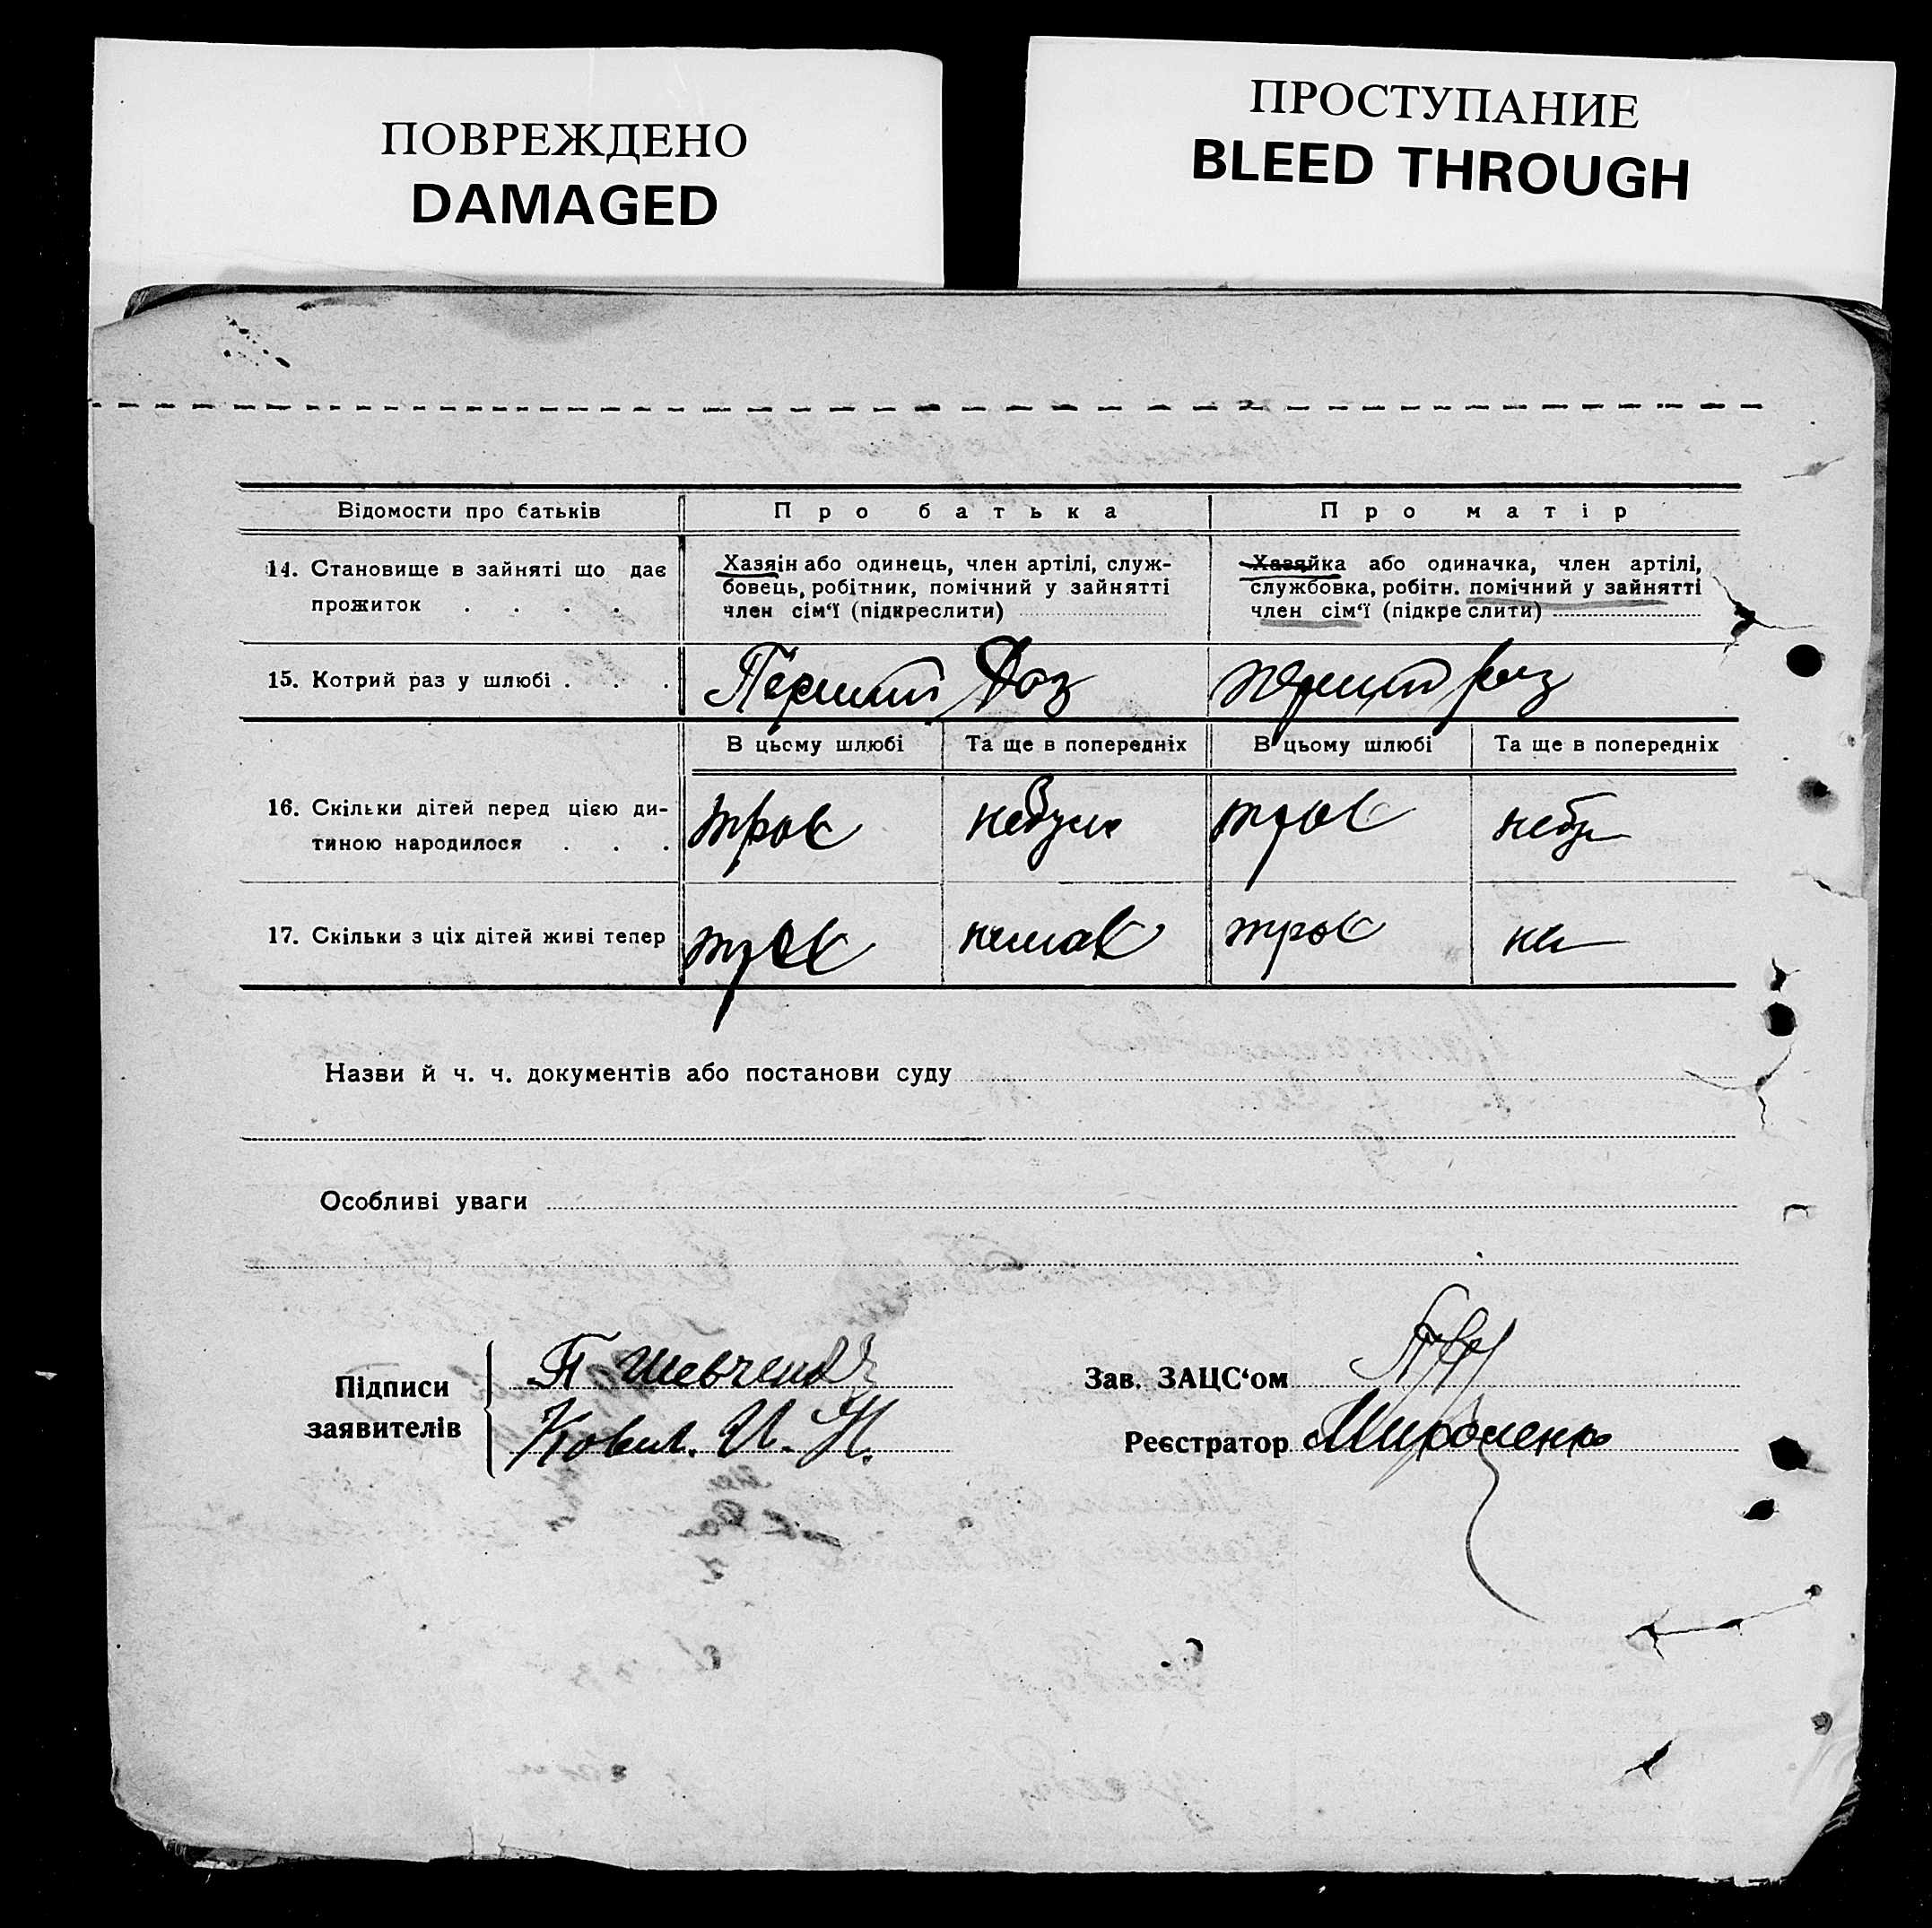 ПОВРЕЖДЕНО
DAMAGED
ПРОСТУПАНИЕ
BLEED THROUGH
Відомости про батьків
Про батька
Про матір
14. Становище в зайняті що дає
прожиток . . . .
Хазяін або одинець, член артілі, служ-
бовець, робітник, помічний у зайнятті
член сім‘ї (підкреслити)
Хазяйка або одиначка, член артілі,
службовка, робітн. помічний у зайнятті
член сім‘ї (підкреслити)
15. Котрий раз у шлюбі . . .
Перший Раз
перший раз
В цьому шлюбі
Та ще в попередніх
В цьому шлюбі
Та ще в попередніх
16. Скільки дітей перед цією ди-
тиною народилося . . .
троє
небуло
троє
небу
17. Скільки з ціх дітей живі тепер
троє
немає
троє
не
Назви й ч. ч. документів або постанови суду
Особливі уваги
Підписи
заявителів
П Шевченко
Ковал. И. Н.
Зав. ЗАЦС‘ом
Реєстратор Мироненко